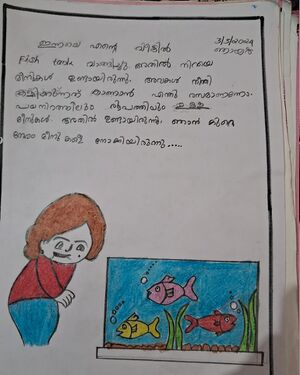 ഇന്നലെ എന്റെ വീട്ടിൽ 3/3/2024
Fish tank വാങ്ങിച്ചു. അതിൽ നിറയെ ഞായർ
മീനുകൾ ഉണ്ടായിരുന്നു. അവകൾ നീന്തി
കളിക്കുന്നത് കാണാൻ എന്തു രസമാണെന്നോ.
പലനിറത്തിലും രൂപത്തിലും ഉള്ള
മീനുകൾ അതിൽ ഉണ്ടായിരുന്നു. ഞാൻ കുറെ
നേരം മീനുകളെ നോക്കിയിരുന്നു.....